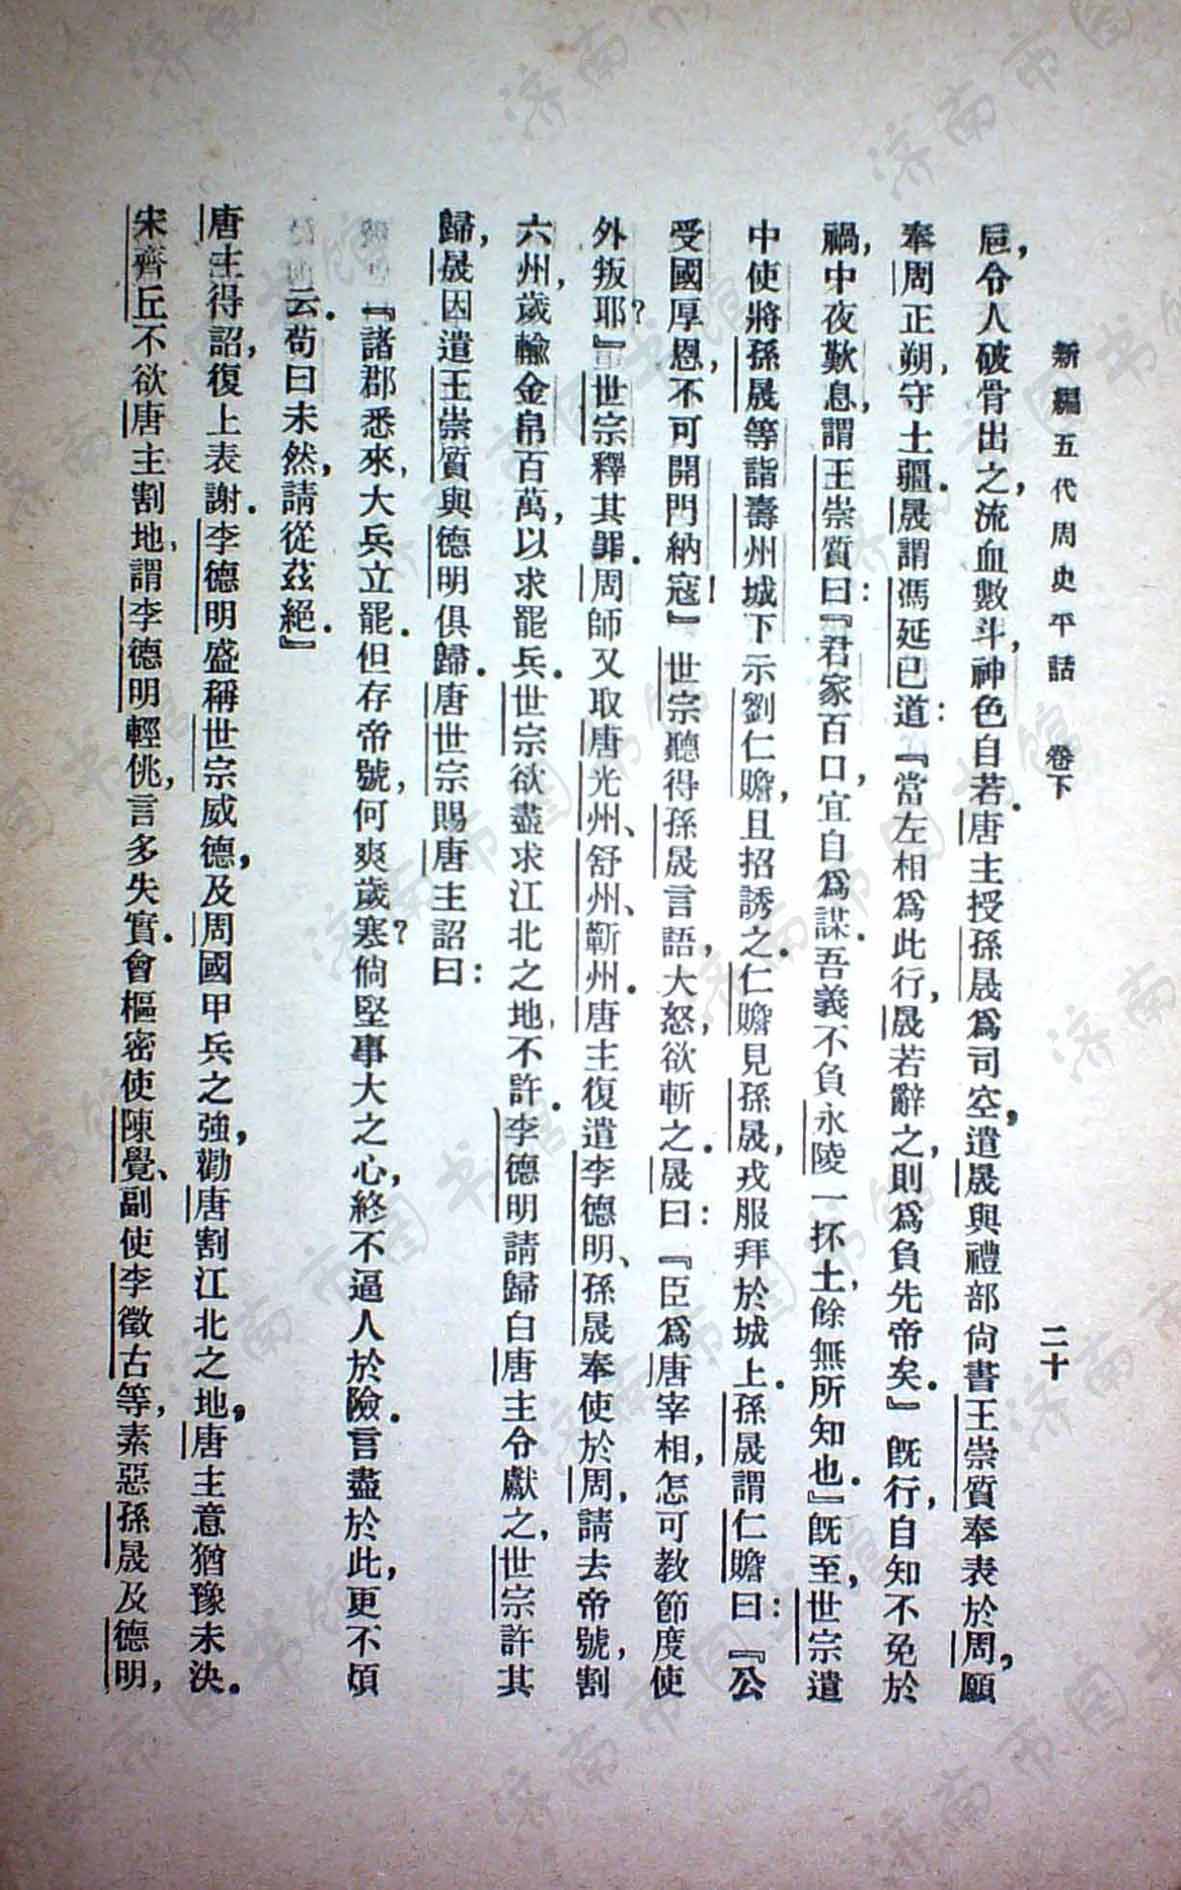 新編五代周史平話　卷下　二十
巵，令人破骨出之，流血數斗，神色自若．唐主授孫晟爲司空，遣晟與禮部尚書王崇質奉表於周，願
奉周正朔，守土疆．晟謂馮延已道：『當左相爲此行，晟若辭之，則爲負先帝矣．』旣行，自知不免於
禍，中夜歎息，謂王崇質曰：『君家百口，宜自爲謀．吾義不負永陵一抔土，餘無所知也．』旣至，世宗遣
中使將孫晟等詣壽州城下示劉仁贍，且招誘之．仁贍見孫晟，戎服拜於城上．孫晟謂仁贍曰：『公
受國厚恩，不可開門納寇！』世宗聽得孫晟言語，大怒，欲斬之．晟曰：『臣爲唐宰相，怎可教節度使
外叛耶？』世宗釋其罪．周師又取唐光州、舒州、蘄州．唐主復遣李德明、孫晟奉使於周，請去帝號，割
六州，歲輸金帛百萬，以求罷兵．世宗欲盡求江北之地，不許．李德明請歸白唐主令獻之，世宗許其
歸，晟因遣王崇質與德明俱歸．唐世宗賜唐主詔曰：
『諸郡悉來，大兵立罷．但存帝號，何爽歲寒？倘堅事大之心，終不逼人於險．言盡於此，更不煩
云．苟曰未然，請從茲絕．』
唐主得詔，復上表謝．李德明盛稱世宗威德，及周國甲兵之強，勸唐割江北之地，唐主意猶豫未決．
宋齊丘不欲唐主割地，謂李德明輕佻，言多失實．會樞密使陳覺、副使李徵古等，素惡孫晟及德明，
济南市图书馆